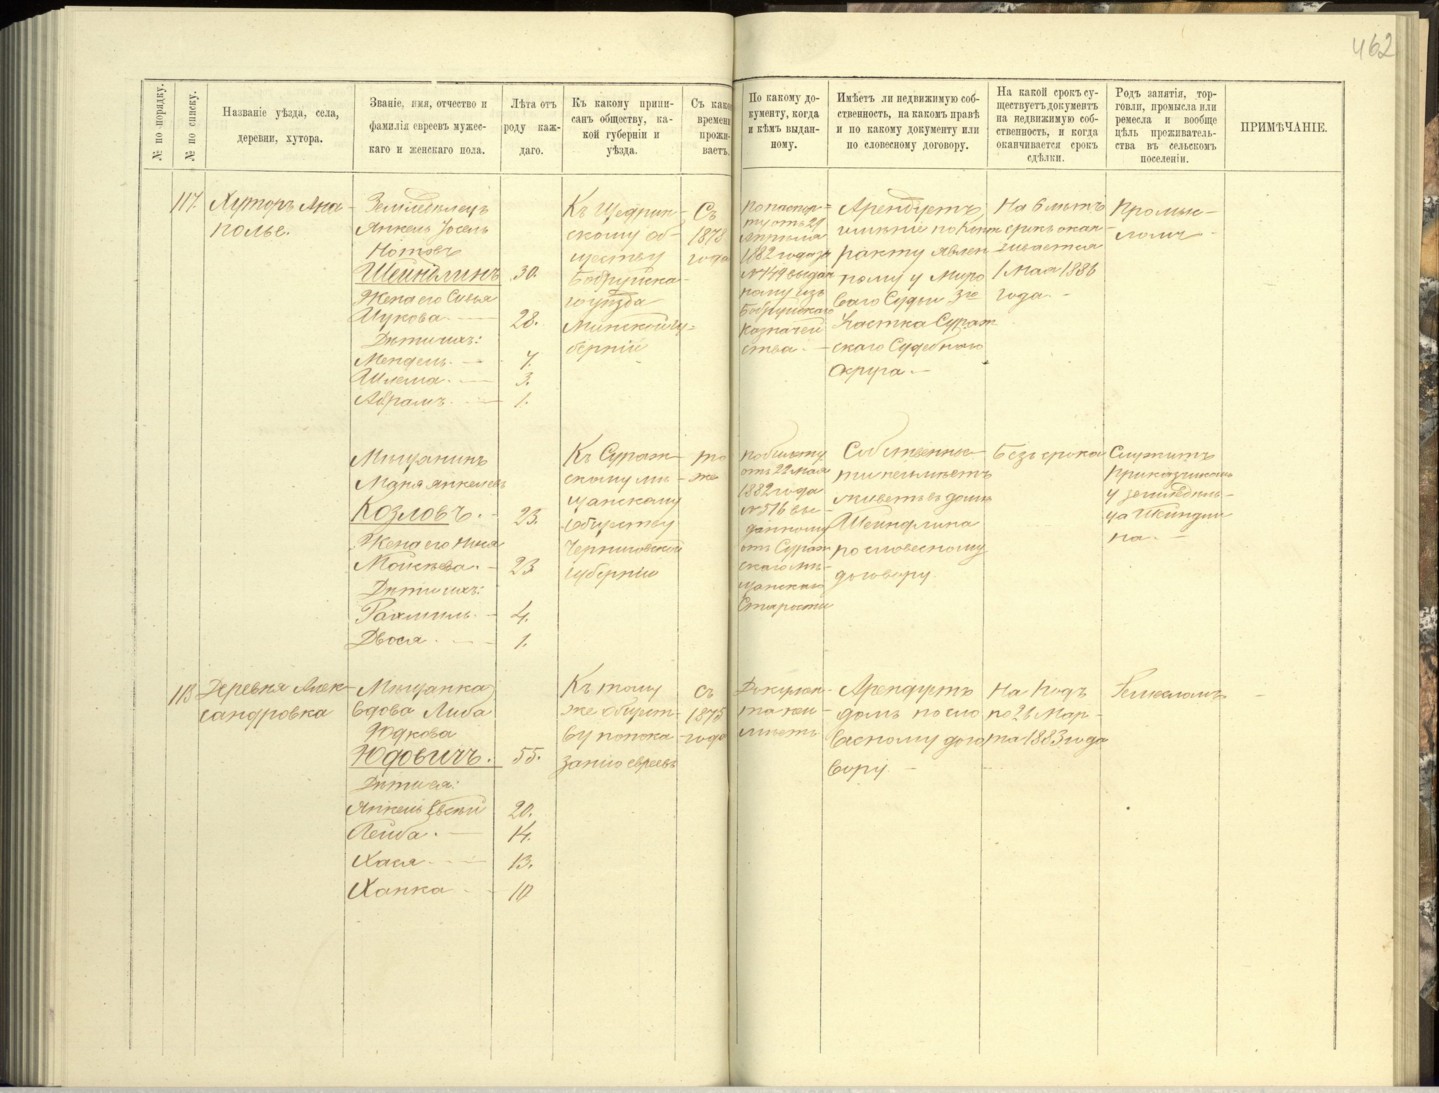 462
№ по порядку.
№ по списку.
Названіе уѣзда, села,
деревни, хутора.
Званіе, имя, отчество и
фамилія евреевъ мужес-
каго и женскаго пола.
Лѣта отъ
роду каж-
даго.
Къ какому припи-
санъ обществу, ка-
кой губерніи и
уѣзда.
Съ како
времени
прожи-
ваетъ.
По какому до-
кументу, когда
и кѣмъ выдан-
ному.
Имѣетъ ли недвижимую соб-
ственность, на какомъ правѣ
и по какому документу или
по словесному договору.
На какой срокъ су-
ществуетъ документъ
на недвижимую соб-
ственность, и когда
оканчивается срокъ
сдѣлки.
Родъ занятія, тор-
говли, промысла или
ремесла и вообще
цѣль проживатель-
ства въ сельскомъ
поселеніи.
ПРИМѢЧАНІЕ.
117.
Хуторъ Ана-
полье.
Земледѣлецъ
Янкель Іосель
Нотовъ
Шейндлинъ 30.
Жена его Сонья
28.
Дѣти ихъ:
Мендель. 7.
Шлема. 3.
Абрамъ. 1.
Къ Щедрин-
скому об-
ществу
Бобруйска-
го уѣзда
Минской гу-
берніи
Съ
1878
года
По паспор-
ту отъ 29
Апрѣля
1882 года за
№ 149 выдан
ному изъ
Бобруйскаго
Казначей
ства.
Арендуетъ
имѣніе по Конт
ракту явлен
ному у Миро
ваго Судьи 3го
Участка Сураж
скаго Судебнаго
Округа.
На 6 лѣтъ
срокъ окан-
чивается
1 Мая 1886
года.
Промыс-
ломъ
Мѣщанинъ
Козловъ. 25.
Жена его
Моисѣева. 23
Дѣти ихъ:
Рахмиль. 4.
Двося. 1.
Къ Сураж-
скому мѣ-
щанскому
обществу
Черниговской
губерніи
то
же
по билету
отъ 22 мая
1882 года
№ 516 вы-
данному
отъ Сураж
скаго мѣ-
щанскаго
Старосты
Собственнос-
ти неимѣетъ
живетъ въ домѣ
Шейндлина
по словесному
договору.
Безъ срока
Служитъ
Прикащикомъ
у земледѣль-
ца Шейндли
на.
118
Деревня Алек-
сандровка
Мѣщанка
вдова Либа
Юдкова
Юдовичъ. 55.
Дѣти ея:
Янкель 20.
Лейба. 14.
Хася 13.
Ханка 10
Къ тому
же общест-
ву по пока-
занію евреевъ
Съ
1875
года
Докумен-
та неи-
мѣетъ
Арендуетъ
домъ по сло
весному дого
вору.
На годъ
по 26 Мар-
та 1883 года
Ремесломъ